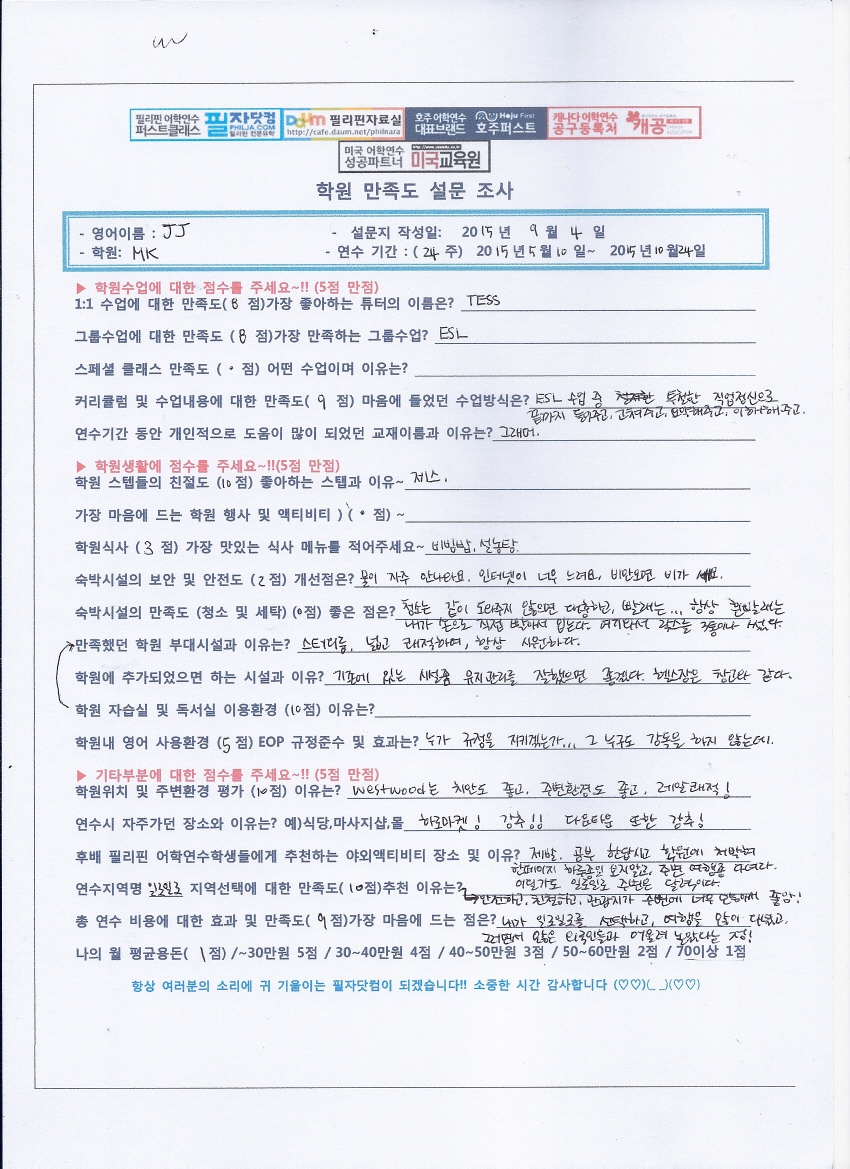 필리핀 어학연수 퍼스트클래스 필자닷컴 PHILJA.COM 필리핀 전문유학
Daum 필리핀자료실 http://cafe.daum.net/philnara
호주 어학연수 대표브랜드 Hoju First 호주퍼스트
캐나다 어학연수 공구등록처 캐공
미국 어학연수 성공파트너 미국교육원
학원 만족도 설문 조사
- 영어이름 : JJ - 설문지 작성일: 2015 년 9 월 4 일
- 학원: MK - 연수 기간 : ( 24 주) 2015년 5월 10 일~ 2015년 10월 24일
▶ 학원수업에 대한 점수를 주세요~!! (5점 만점)
1:1 수업에 대한 만족도( 8 점)가장 좋아하는 튜터의 이름은? TESS
그룹수업에 대한 만족도 ( 8 점)가장 만족하는 그룹수업? ESL
스페셜 클래스 만족도 ( · 점) 어떤 수업이며 이유는?
커리큘럼 및 수업내용에 대한 만족도( 9 점) 마음에 들었던 수업방식은? ESL 수업 중 투철한 직업정신으로
끝까지 들어주고, 고쳐주고, 이해해주고.
연수기간 동안 개인적으로 도움이 많이 되었던 교재이름과 이유는? 그래머.
▶ 학원생활에 점수를 주세요~!!(5점 만점)
학원 스텝들의 친절도 (10 점) 좋아하는 스텝과 이유~ 제스.
가장 마음에 드는 학원 행사 및 액티비티 ) ( · 점) ~
학원식사 ( 3 점) 가장 맛있는 식사 메뉴를 적어주세요~ 비빔밥, 설농탕.
숙박시설의 보안 및 안전도 ( 2 점) 개선점은? 물이 자주 안나와요. 인터넷이 너무 느려요, 비만오면 비가 새요.
숙박시설의 만족도 (청소 및 세탁) (0점) 좋은 점은? 청소는 같이 도와주지 않으면 대충하고, 빨래는... 항상 흰빨래는
내가 손으로 직접 빨아서 입는다. 여기와서 락스를 3통이나 썼다
만족했던 학원 부대시설과 이유는? 스터디룸, 넓고 쾌적하며, 항상 시원하다.
학원에 추가되었으면 하는 시설과 이유? 기존에 있는 시설좀 유지관리를 잘했으면 좋겠다. 헬스장은 창고와 같다.
학원 자습실 및 독서실 이용환경 (10점) 이유는?
학원내 영어 사용환경 ( 5 점) EOP 규정준수 및 효과는? 누가 규정을 지키겠는가... 그 누구도 감독을 하지 않는데.
▶ 기타부분에 대한 점수를 주세요~!! (5점 만점)
학원위치 및 주변환경 평가 (10점) 이유는? westwood는 치안도 좋고, 주변환경도 좋고, 레알쾌적!
연수시 자주가던 장소와 이유는? 예)식당,마사지샵,몰 하로마켓! 강추!! 다운타운 또한 강추!
후배 필리핀 어학연수학생들에게 추천하는 야외액티비티 장소 및 이유? 제발. 공부 한답시고 학원에 처박혀
한페이지 하루종일 보지말고, 주변 여행좀 다녀라.
이달가도 일로일로 주변은
연수지역명 일로일로 지역선택에 대한 만족도( 10점)추천 이유는? 안전하고, 친절하고, 관광지가 주변에 너무 많아서 좋아!
총 연수 비용에 대한 효과 및 만족도( 9점)가장 마음에 드는 점은? 내가 일로일로를 선택하고, 여행을 많이 다녔고,
그러면서 많은 외국인들과 어울려 놀았다는 점!
나의 월 평균용돈( 1점) /~30만원 5점 / 30~40만원 4점 / 40~50만원 3점 / 50~60만원 2점 / 70이상 1점
항상 여러분의 소리에 귀 기울이는 필자닷컴이 되겠습니다!! 소중한 시간 감사합니다 (♡♡)(_ _)(♡♡)